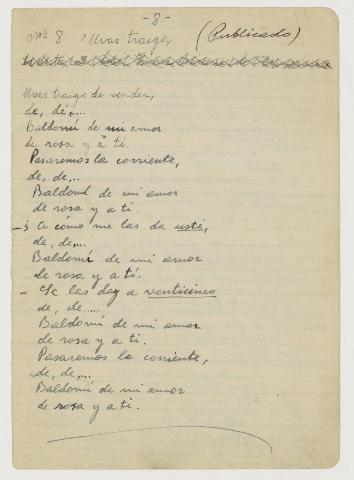 -8-
nº 8 "Uvas traigo, (Publicado)
Uvas traigo de vender,
de, de,...
Baldomí de mi amor
de rosa y a ti.
Pasaremos la corriente,
de, de,..
Baldomí de mi amor
de rosa y a ti.
-¿ A cómo me las da usté,
de, de,...
Baldomí de mi amor
de rosa y a ti.
- Se las doy a venticinco
de, de.....
Baldomí de mi amor
de rosa y a ti.
Pasaremos la corriente,
de, de,...
Baldomí de mi amor
de rosa y a ti.